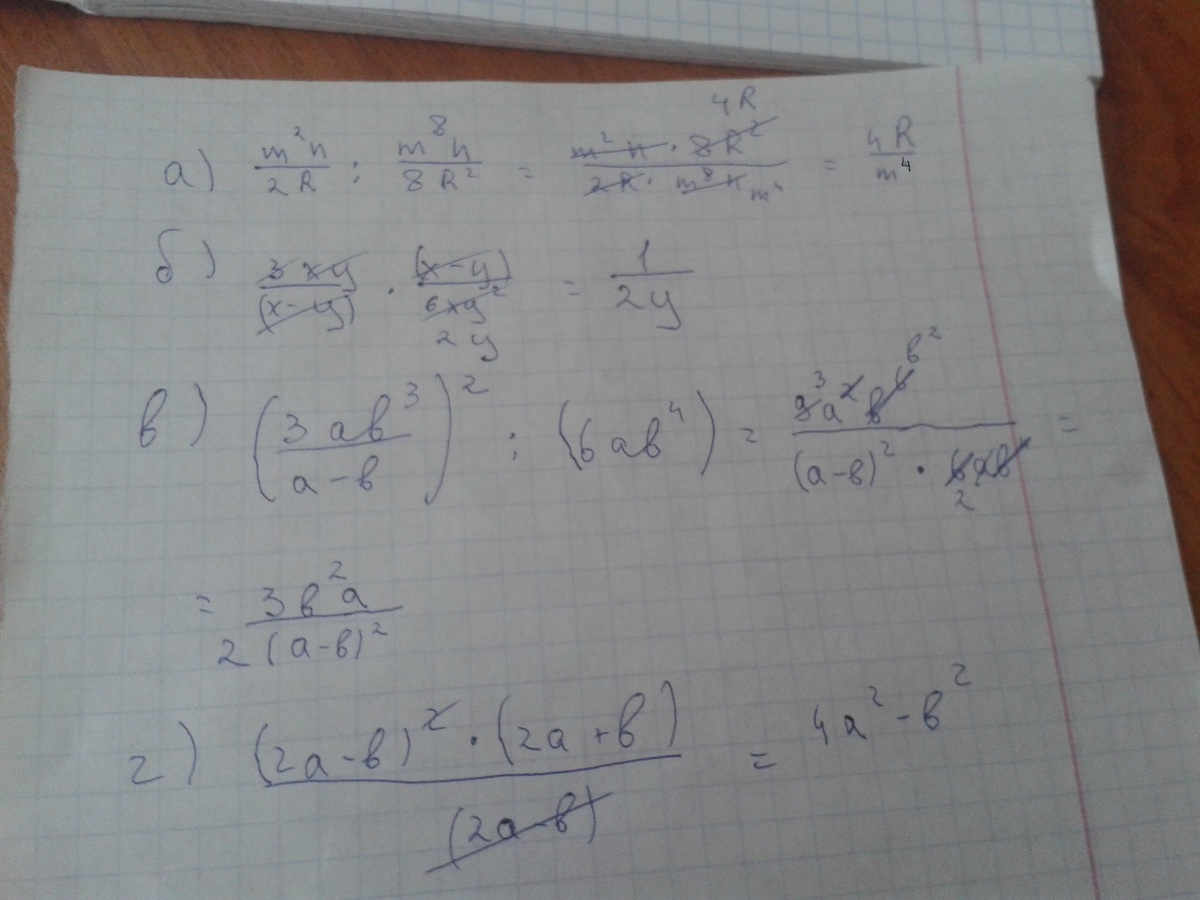 а) m²n/2R : m⁸n/8R² = m²n · 8R²/2R · m⁸n 4R m⁴ = 4R/m⁴
б) 3xy/(x-y) · (x-y)/6xy² 2y = 1/2y
в) (3ab³/a-b)² : (6ab⁴) = 9³a²b⁶ b²/(a-b)² · 6ab 2 =
= 3b²a/2(a-b)²
г) (2a-b)² · (2a+b)/(2a-b) = 4a²-b²